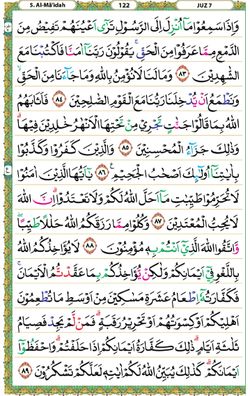 5. Al-Mâ'idah 122 JUZ 7
وَإِذَا سَمِعُوا مَا أُنْزِلَ إِلَى الرَّسُولِ تَرَى أَعْيُنَهُمْ تَفِيضُ
مِنَ الدَّمْعِ مِمَّا عَرَفُوا مِنَ الْحَقِّ يَقُولُونَ رَبَّنَا آمَنَّا فَاكْتُبْنَا مَعَ
الشّٰهِدِيْنَ ٨٣ وَمَا لَنَا لَا نُؤْمِنُ بِاللّٰهِ وَمَا جَاءَنَا مِنَ الْحَقِّ
وَنَطْمَعُ أَنْ يُدْخِلَنَا رَبُّنَا مَعَ الْقَوْمِ الصّٰلِحِيْنَ ٨٤ فَأَثَابَهُمُ
اللّٰهُ بِمَا قَالُوا جَنّٰتٍ تَجْرِيْ مِنْ تَحْتِهَا الْأَنْهٰرُ خٰلِدِيْنَ فِيْهَا
وَذٰلِكَ جَزَاءُ الْمُحْسِنِيْنَ ٨٥ وَالَّذِيْنَ كَفَرُوْا وَكَذَّبُوْا
بِاٰيٰتِنَا أُولٰئِكَ أَصْحٰبُ الْجَحِيْمِ ٨٦ يٰأَيُّهَا الَّذِيْنَ اٰمَنُوْا
لَا تُحَرِّمُوْا طَيِّبٰتِ مَا أَحَلَّ اللّٰهُ لَكُمْ وَلَا تَعْتَدُوْا إِنَّ اللّٰهَ
لَا يُحِبُّ الْمُعْتَدِيْنَ ٨٧ وَكُلُوْا مِمَّا رَزَقَكُمُ اللّٰهُ حَلٰلًا طَيِّبًا
وَاتَّقُوا اللّٰهَ الَّذِيْ أَنْتُمْ بِهٖ مُؤْمِنُوْنَ ٨٨ لَا يُؤَاخِذُكُمُ اللّٰهُ
بِاللَّغْوِ فِيْ أَيْمَانِكُمْ وَلٰكِنْ يُؤَاخِذُكُمْ بِمَا عَقَّدْتُمُ الْأَيْمَانَ
فَكَفَّارَتُهٗ إِطْعَامُ عَشَرَةِ مَسٰكِيْنَ مِنْ أَوْسَطِ مَا تُطْعِمُوْنَ
أَهْلِيْكُمْ أَوْ كِسْوَتُهُمْ أَوْ تَحْرِيْرُ رَقَبَةٍ فَمَنْ لَمْ يَجِدْ فَصِيَامُ
ثَلٰثَةِ أَيَّامٍ ذٰلِكَ كَفَّارَةُ أَيْمَانِكُمْ إِذَا حَلَفْتُمْ وَاحْفَظُوْا
أَيْمَانَكُمْ كَذٰلِكَ يُبَيِّنُ اللّٰهُ لَكُمْ اٰيٰتِهٖ لَعَلَّكُمْ تَشْكُرُوْنَ ٨٩